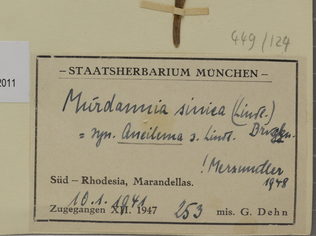 449/124
2011
– STAATSHERBARIUM MÜNCHEN –
Murdannia sinica (Lindl.) Brückn.
= syn. Aneilema s. Lindl.
! Merxmüller
1948
Süd – Rhodesia, Marandellas.
10.1.1941
Zugegangen XII. 1947 253 mis. G. Dehn